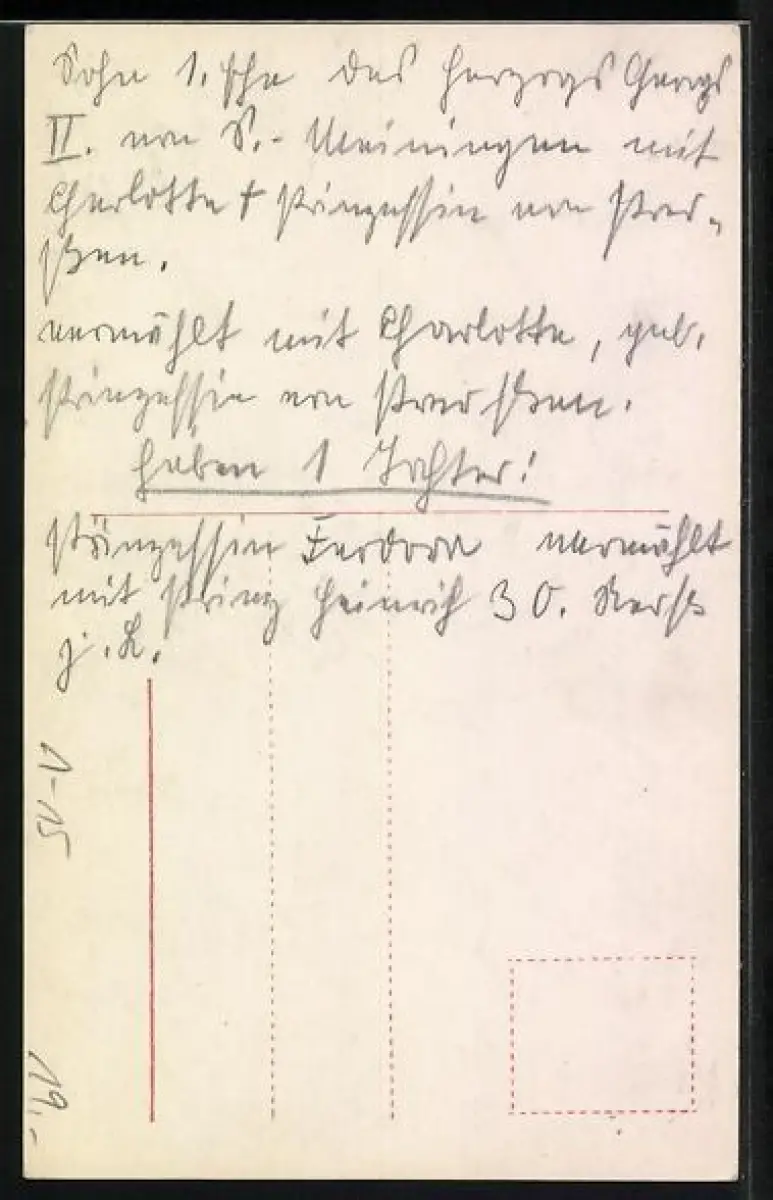 Sohn 1. Ehe des Herzogs Georgs
II. von S.-Meiningen mit
Charlotte † Prinzessin von Preu-
ßen.
vermählt mit Charlotte, geb.
Prinzessin von Preußen.
haben 1 Tochter!
Prinzessin Feodora vermählt
mit Prinz Heinrich 30. Reuß
j. L.
1-15
19,-